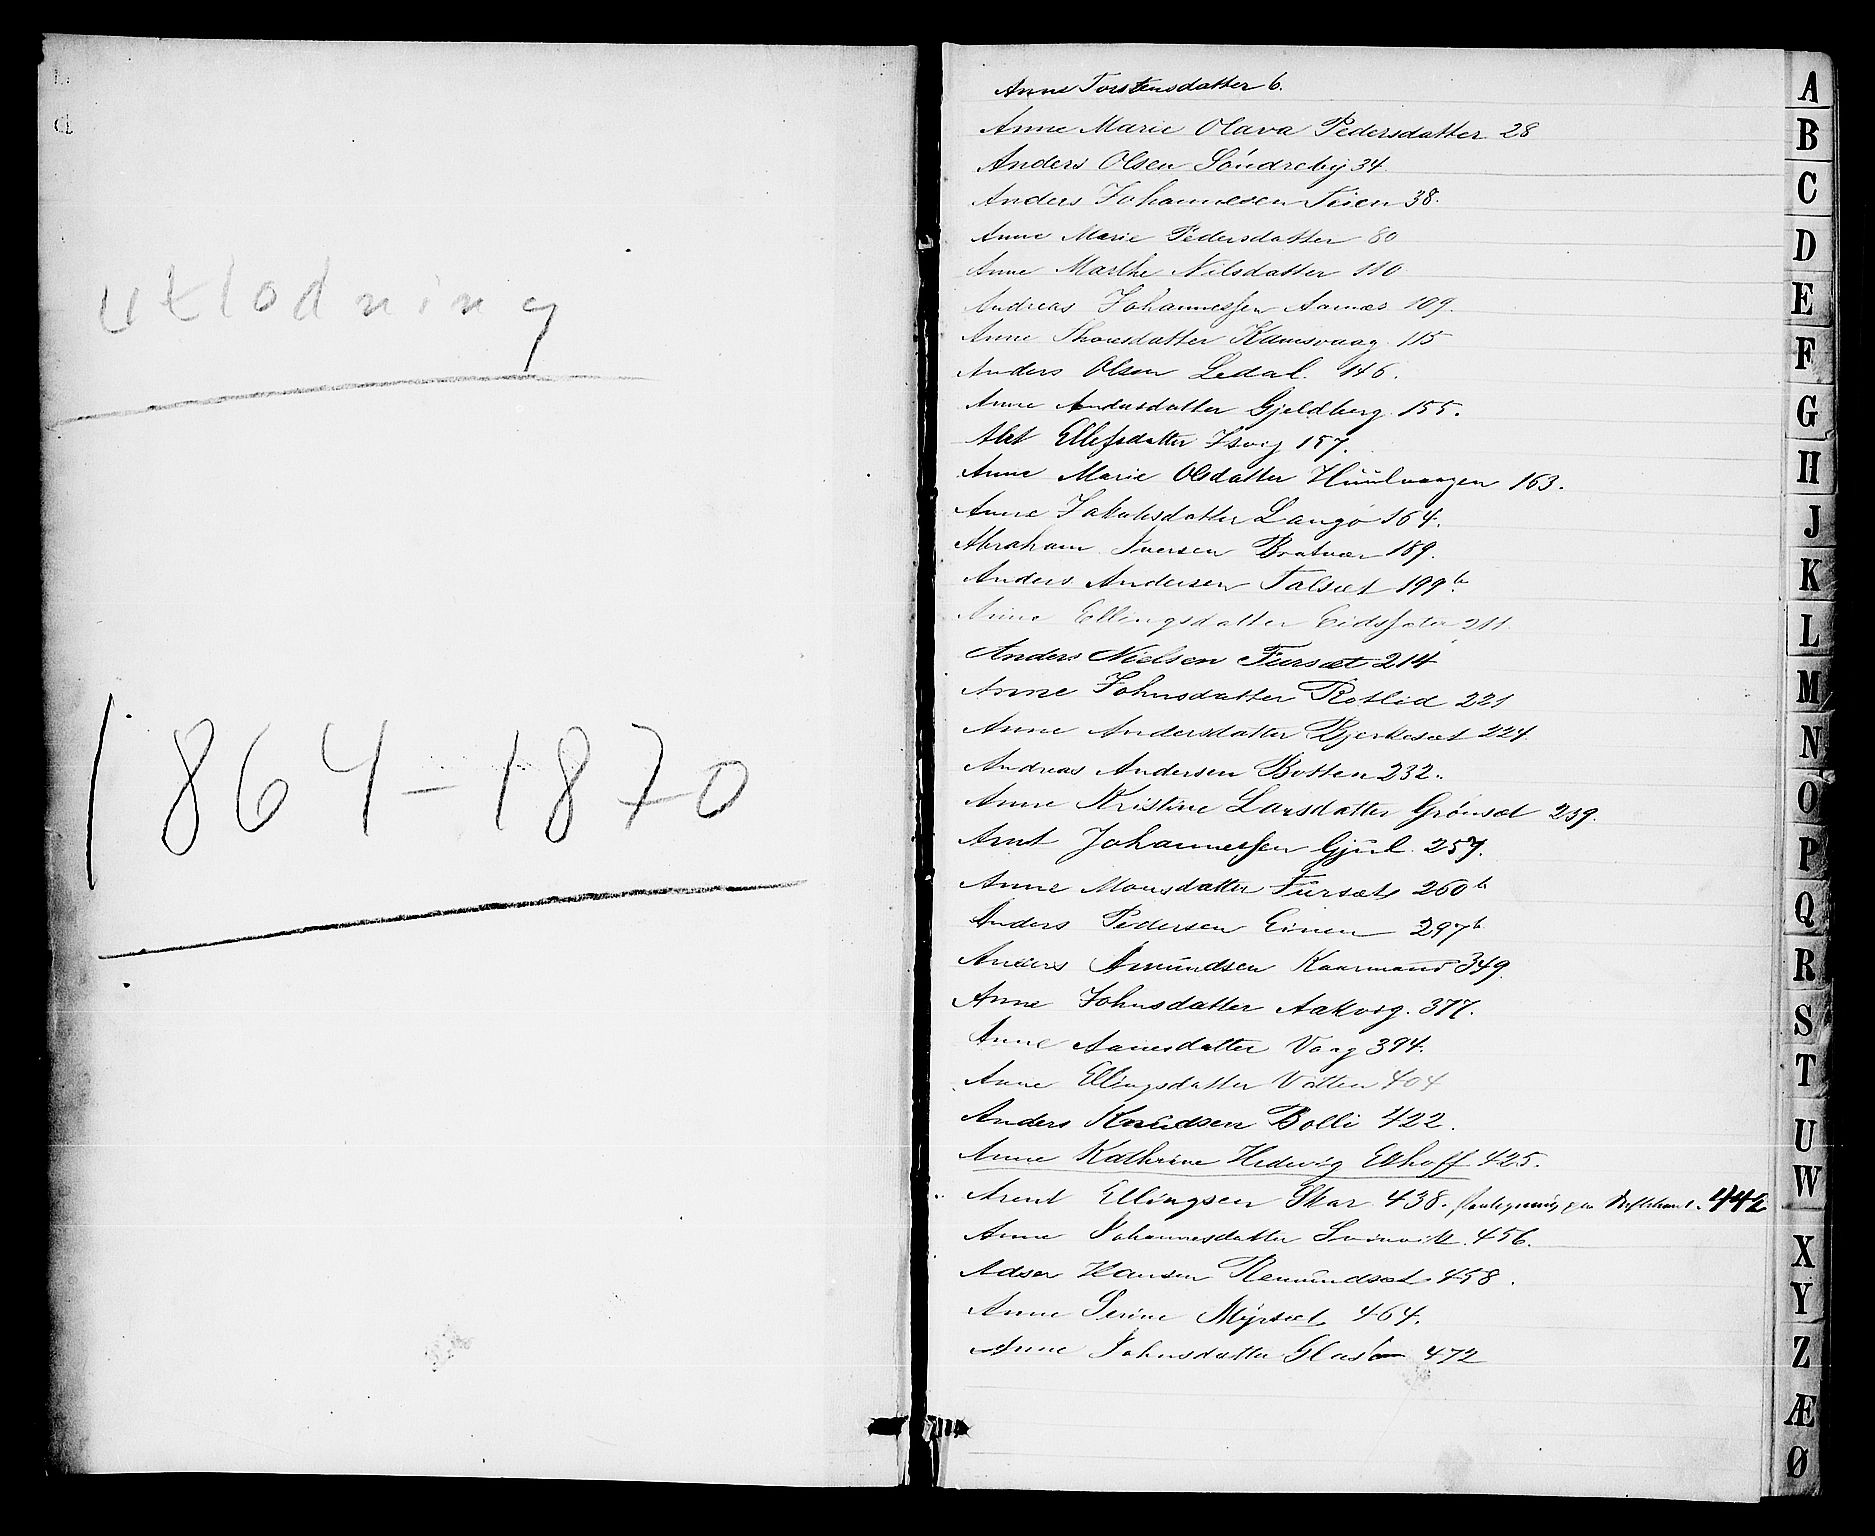 utlodning
1864-1870
Anne Torstensdatter 6.
Anne Marie Olava Pedersdatter 28
Anders Olsen Söndreby 34
Anders Johannesen Teien 38.
Anne Marie Pedersdatter 80
Anne Marthe Nilsdatter 110
Andreas Johannessen Aarnæs 109.
Anne Kamsvaag 115
Anders Olsen Ledal. 146.
Anne Andersdatter Gjeldberg 155.
Ellefsdatter 157.
Anne Marie Olsdatter 163.
Anne Jakobsdatter Langö 164.
Abraham Iversen Bratvær 189.
Anders Andersen Talset 199 b.
Anne Ellingsdatter 211.
Anders Nielsen Fursæt 214
Anne Johnsdatter Rotlid 221
Anne Andersdatter Bjerkesæt 224
Andreas Andersen Botten 232.
Anne Kristine Larsdatter Grönset 239.
Arnt Johannessen Gjül. 257.
Anne Monsdatter Fürsæt 260 b
Anders Pedersen 297 b
Anders Amündsen 349.
Anne Johnsdatter Aakvig. 377.
Anne Vaag 394.
Anne Ellingsdatter 404
Anders Knudsen Bolli 422.
Anne Kathrine Hedevig 425.
Arent Ellingsen Skar 438. 442
Anne Johannesdatter 456.
Adser Hansen Remündset 458.
Anne Serine Myrset 464.
Anne Johnsdatter 472
A
B
C
D
E
F
G
H
J
K
L
M
N
O
P
Q
R
S
T
U
W
X
Y
Z
Æ
Ø